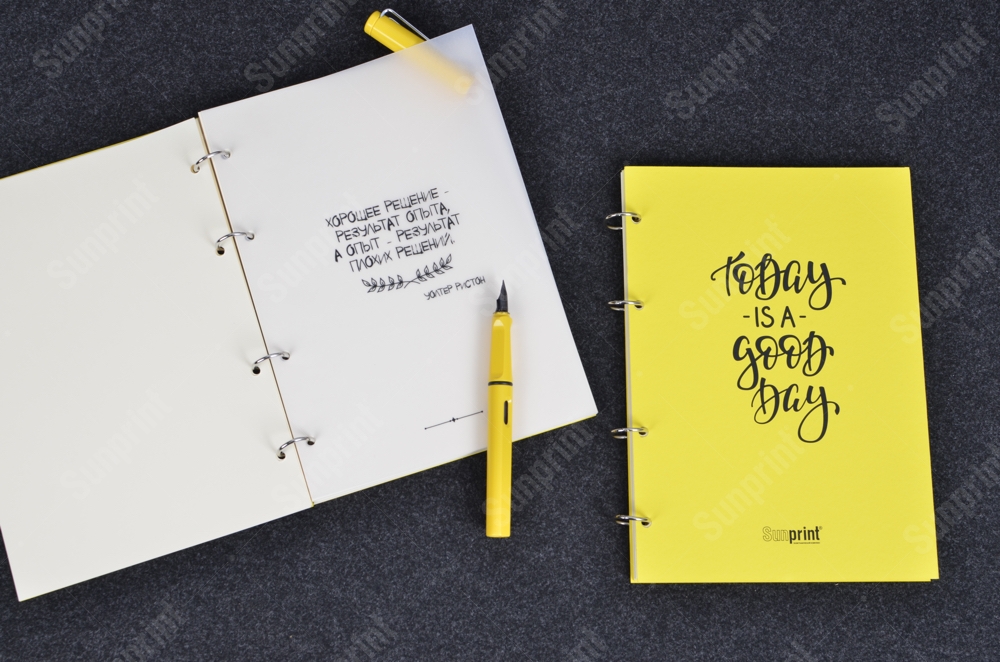 ХОРОШЕЕ РЕШЕНИЕ -
РЕЗУЛЬТАТ ОПЫТА,
А ОПЫТ - РЕЗУЛЬТАТ
ПЛОХИХ РЕШЕНИЙ.
УОЛТЕР РИСТОН
TODAY
- IS A -
GOOD
DAY
Sunprint